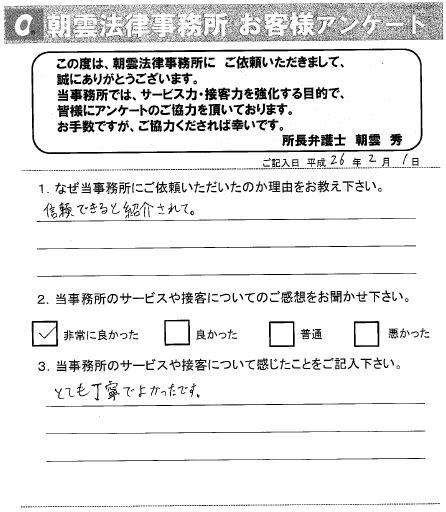 朝雲法律事務所 お客様アンケート
この度は、朝雲法律事務所に ご依頼いただきまして、
誠にありがとうございます。
当事務所では、サービス力・接客力を強化する目的で、
皆様にアンケートのご協力を頂いております。
お手数ですが、ご協力くだされば幸いです。
所長弁護士 朝雲 秀
ご記入日 平成 26 年 2 月 1 日
1. なぜ当事務所にご依頼いただいたのか理由をお教え下さい。
信頼できると紹介されて。
2. 当事務所のサービスや接客についてのご感想をお聞かせ下さい。
✓ 非常に良かった 良かった 普通 悪かった
3. 当事務所のサービスや接客について感じたことをご記入下さい。
とても丁寧でよかったです。